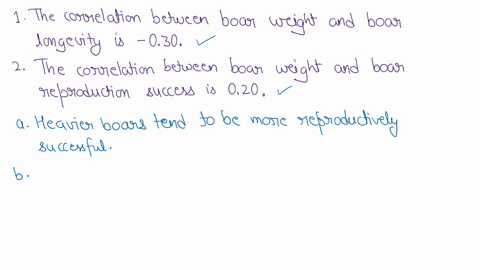 1. The correlation between boar weight and boar
longevity is -0.30. ✓
2. The correlation between boar weight and boar
reproduction success is 0.20. ✓
a. Heavier boars tend to be more reproductively
successful.
b.